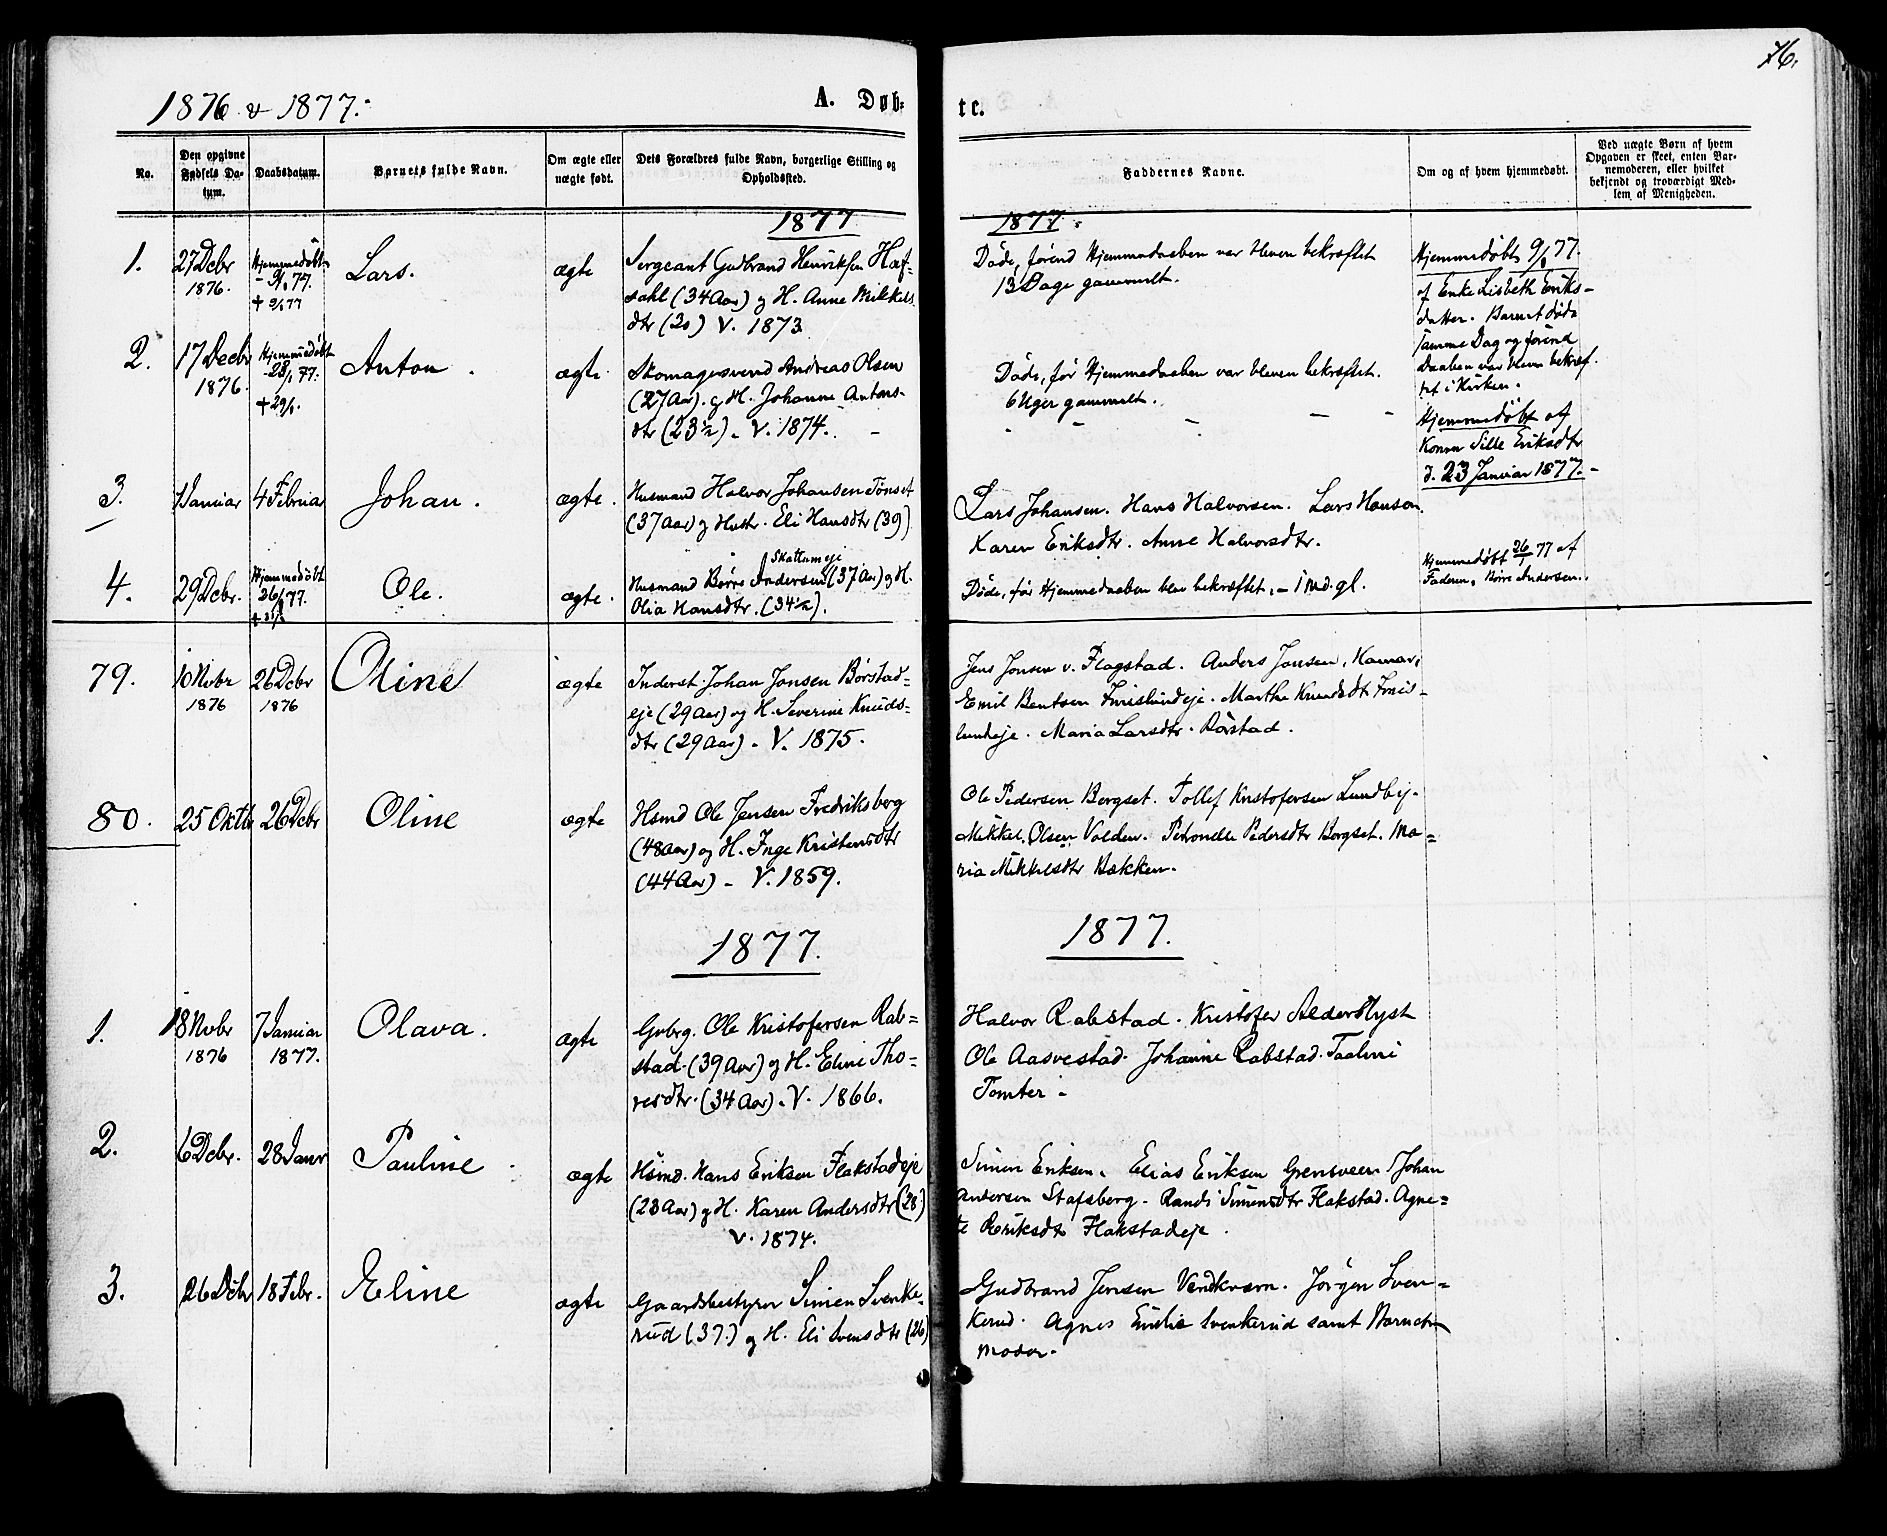 76.
1876 & 1877.
A. Døb-
te.
No.
Den opgivne Fødsels Datum.
Daabsdatum.
Barnets fulde Navn.
Om ægte eller uægte født.
Dets Forældres fulde Navn, borgerlige Stilling og Opholdssted.
Faddernes Navne.
Om og af hvem hjemmedøbt.
Ved uægte Børn af hvem Opgaven er skeet, enten Barnemoderen, eller hvilket bekjendt og troværdigt Medlem af Menigheden.
1877
1877
1.
27 Dcbr
1876.
Hjemmedøbt
9/1 77.
† 9/1 77
Lars.
ægte
Sergeant Gudbrand Henriksen Haf-
dahl (34 Aar) og H. Anne Mikkels
dtr (30) V. 1873
Døde, førend Hjemmedaaben var bleven bekræftet
13 Dage gammelt.
Hjemmedøbt 9/1 77.
af Enke Lisbeth Eriks-
datter. Barnet døde
samme Dag og førend
Daaben var bleven bekræf.
tet i Kirken.
2.
17 Decbr
1876.
Hjemmedøbt
23/1 77.
† 29/1.
Anton.
ægte.
Skomagersvend Andreas Olsen
(27 Aar). og H. Johanne Antons-
dtr (23 1/2). V. 1874.
Døde, før Hjemmedaaben var bleven bekræftet.
6 Uger gammelt.
Hjemmedøbt af
Konen Sille Eriksdtr
d. 23 Januar 1877.
3.
Januar
4 Februar
Johan.
ægte.
Husmand Halvor Johansen Tønset
(37 Aar) og Hustr. Eli Hansdtr (39)
Lars Johansen. Hans Halvorsen. Lars Hanson.
Karen Eriksdtr. Anne Halvorsdtr.
4.
29 Dcbr.
Hjemmedøbt
26/1 77.
Ole.
ægte.
Skattumeje
Husmand Børre Andersen (37 Aar) og H.
Olia Hansdtr. (34 1/2).
Døde, før Hjemmedaaben blev bekræftet. - 1 Md. gl.
Hjemmedøbt 26/1 77 af
Faderen, Børre Andersen.
79.
10 Nvbr
1876
26 Dcbr
1876
Oline
ægte
Inderst. Johan Jonsen Børstad-
eje (29 Aar) og H. Severine Knuds-
dtr (29 Aar). V. 1875.
Jens Jonsen v. Flagstad. Anders Jonsen, Hamar,
Emil Bentsen Furulundeje. Marthe Knudsdtr
lundeje. Maria Larsdtr. Børstad.
80.
25 Oktbr
26 Dcbr
Oline
ægte
Hsmd Ole Jensen Fredriksberg
(48 Aar) og H. Inge Kristensdtr
(44 Aar) - V. 1859.
Ole Pedersen Borgset. Tollef Kristofersen Lundbej.
Mikkel Olsen Volden. Petronelle Pedersdtr Borgset. Ma-
ria Mikkelsdtr Bækken.
1877.
1877.
1.
18 Nvbr
1876
7 Januar
1877.
Olava.
ægte
Gvbrg. Ole Kristofersen Rab-
stad. (39 Aar) og H. Eline Tho-
resdtr. (34 Aar). V. 1866.
Halvor Rabstad. Kristofer Alderslyst
Ole Aasvestad. Johanne Rabstad.
Tomter.
2.
6 Dcbr.
28 Janr
Pauline
ægte
Hsmd. Hans Eriksen Flakstadeje
(28 Aar) og H. Karen Andersdtr (28)
V. 1874.
Simen Eriksen. Elias Eriksen Grensveen. Johan
Andersen Stafsberg. Randi Simensdtr Flakstad. Agne-
te Eriksdtr Flakstadeje.
3.
26 Dcbr
18 Febr.
Eline
ægte
Gaardsbestyrer Simen Svenke-
rud (37.) og H. Eli Svensdtr (26)
Gudbrand Jensen Vendkværn. Jørgen Sven-
kerud. Agnes Emilie Svenkerud samt Barnets
Moder.